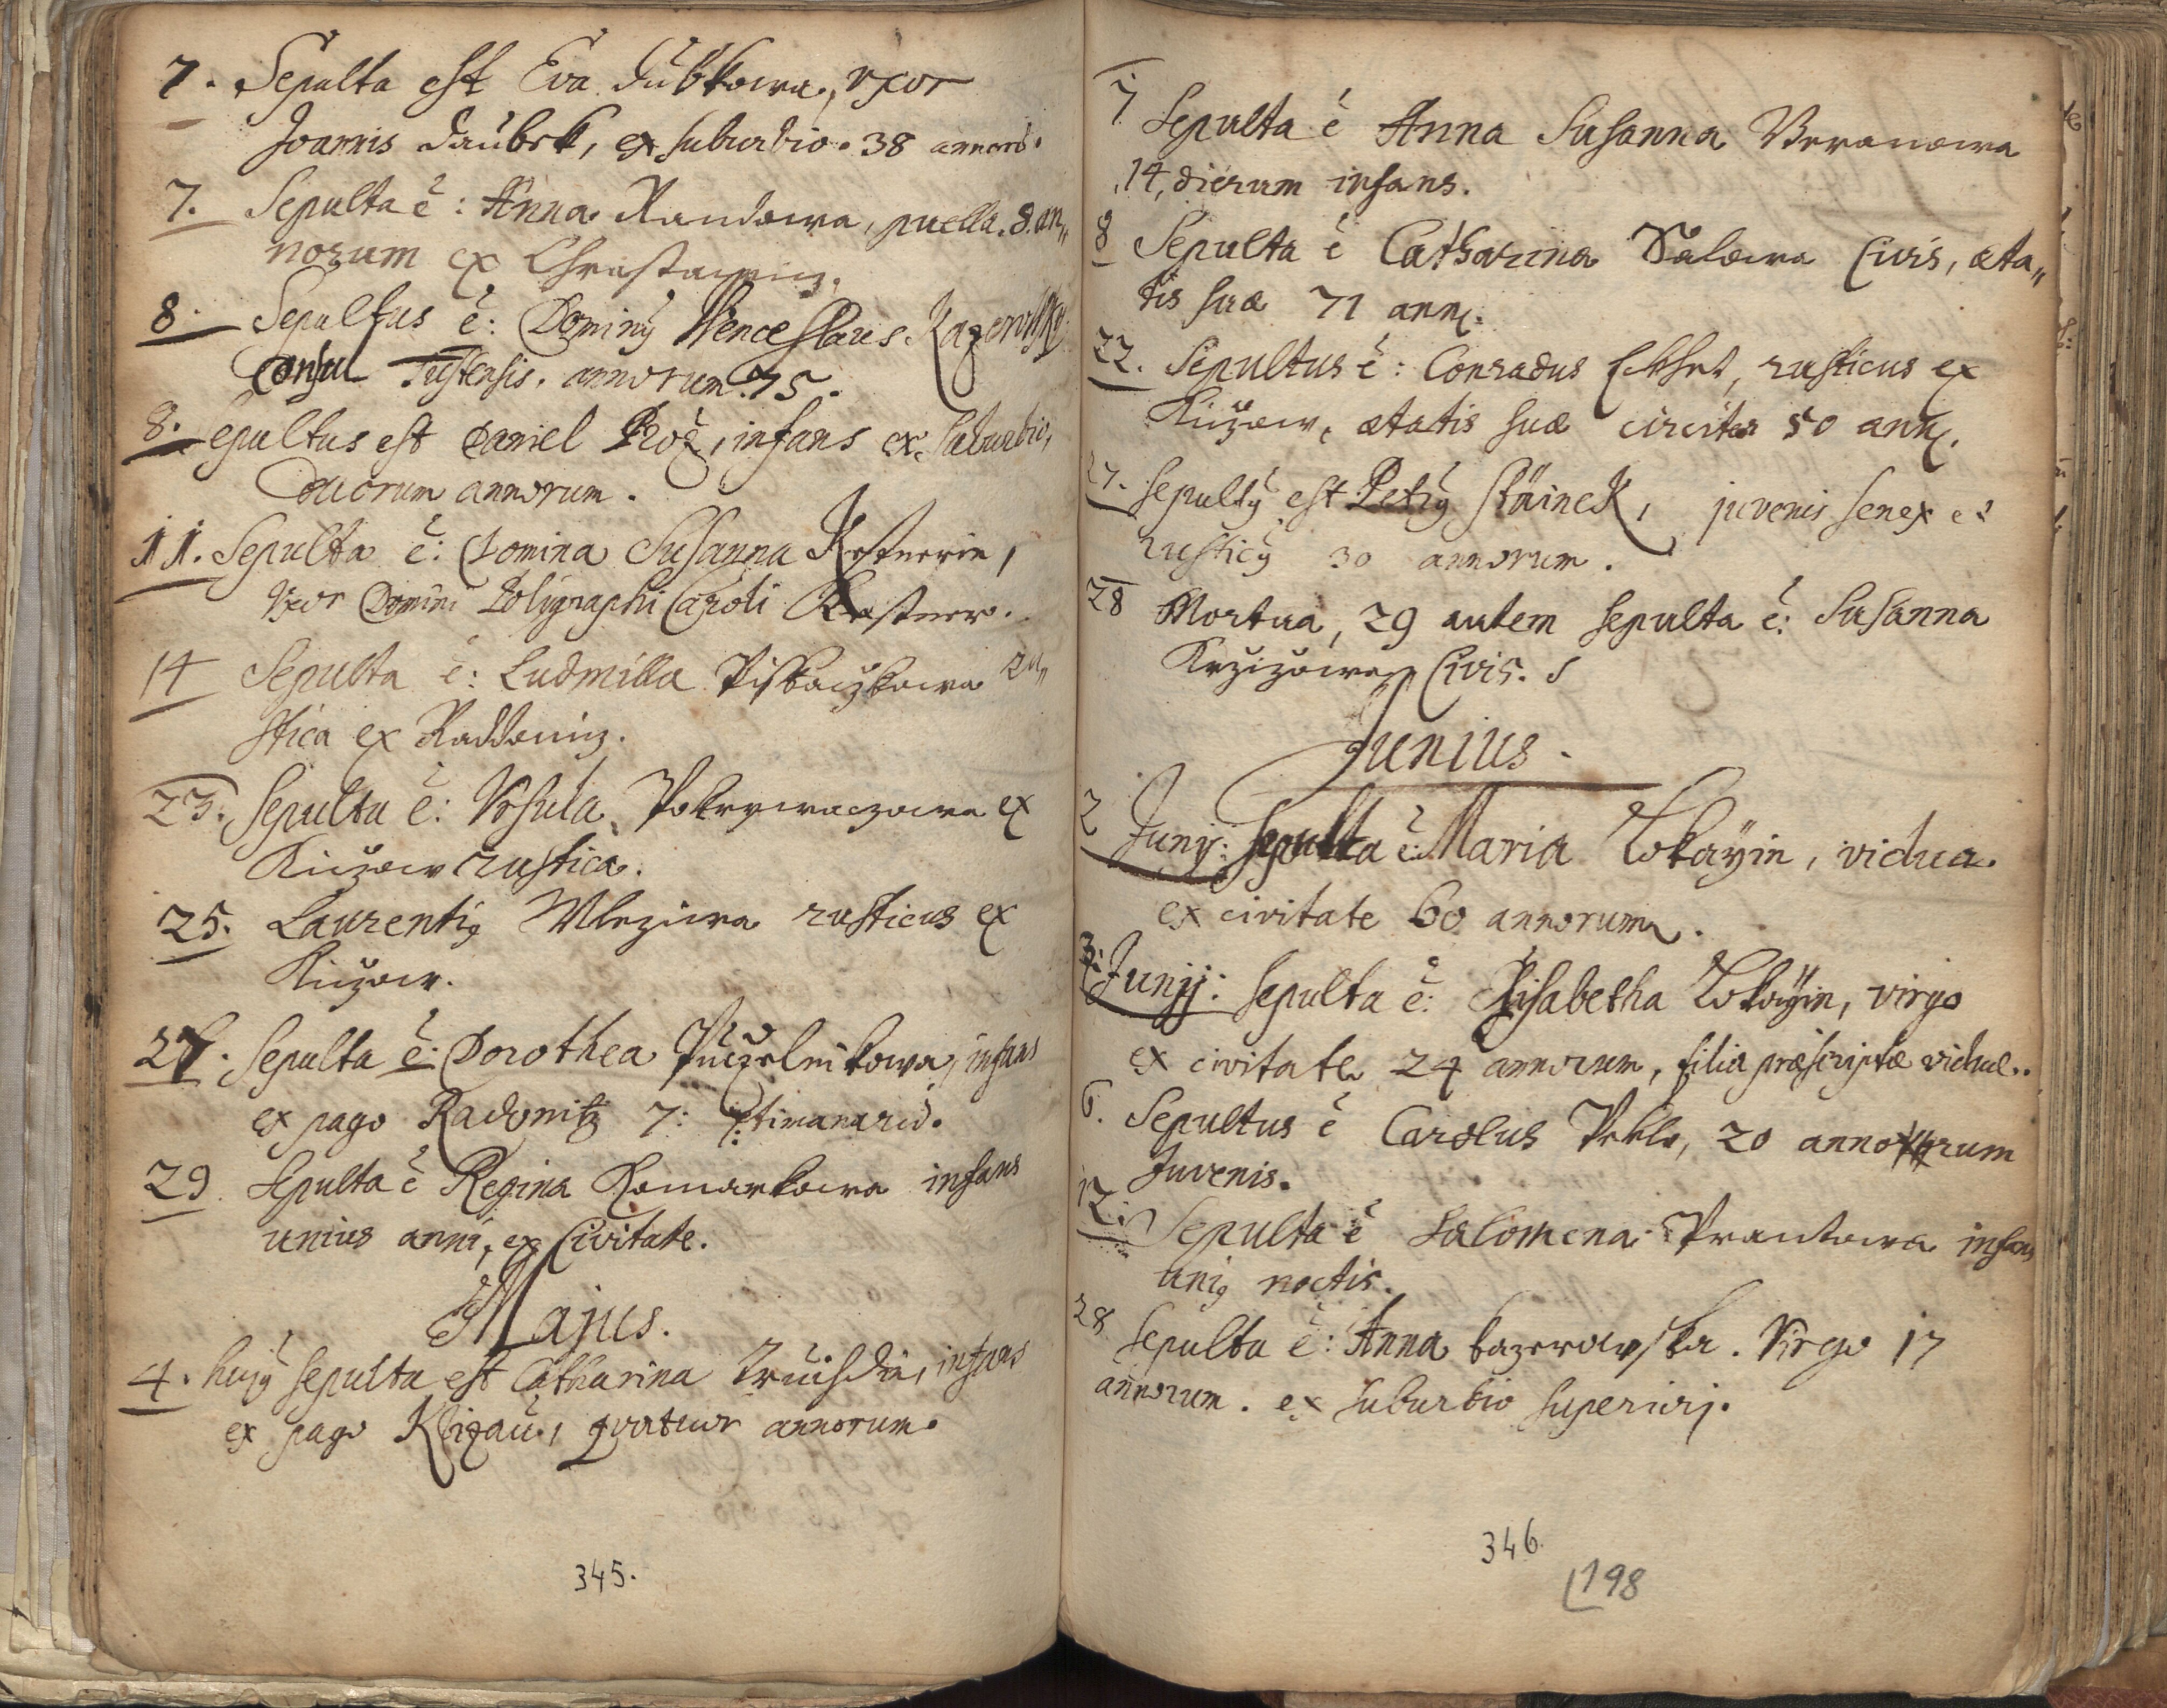 7. Sepulta est Eva Dubkowa, uxor
Joannis Daubek, ex suburbio. 38 annorũ.
7. Sepulta ẽ: Anna Randowa, puella. 8. an„
norum ex Chrastawiz.
8. Sepultus ẽ: Dominꝰ Wenceslaus Kazerowsky
Consul Tustensis. annorum. 75.
8. Sepultus est Daniel Proz, infans ex Suburbio,
duorum annorum.
11. Sepulta ẽ: Domina Susanna Kestnerin,
Uxor Domini Polygraphi Caroli Kestner.
14 Sepulta ẽ: Ludmilla Pistaczkowa ru„
stica ex Raddoniz.
23. Sepulta ẽ: Ursula Pokrywaczowa ex
Kiczow rustica.
25. Laurentiꝰ Mleziwa rusticus ex
Kiczow.
27. Sepulta ẽ: Dorothea Puczelnikowa, infans
ex pago Radonitz 7: septimanarũ.
29. Sepulta ẽ Regina Komarkowa infans
unius anni, ex Civitate.
Majus.
4. hujꝰ sepulta est Catharina, infans
ex pago Klizau, quatuor annorum.
345.
7 Sepulta ẽ Anna Susanna Beranowa
14, dierum infans.
8 Sepulta ẽ Catharina Salowa Civis, æta„
tis suæ 71 ann.
22. Sepultus ẽ: Conradus Eckhet, rusticus ex
Kiczow, ætatis suæ circiter 50 ann.
27. Sepultꝰ est Petrꝰ Stainek, juvenis senex et
rusticꝰ 30 annorum.
28 Mortua, 29 autem sepulta ẽ: Susanna
Krziżowa Civis.
Junius.
2 Junij: Sepulta ẽ: Maria Tokayin, vidua
ex civitate 60 annorum.
3. Junij: sepulta ẽ: Elisabetha Tokayin, virgo
ex civitate 24 annorum, filia præscriptæ viduæ.
6. Sepultus ẽ Carolus Peklo, 20 annorum
Juvenis.
12. Sepulta ẽ Salomena Prantowa infans
uniꝰ noctis.
28 Sepulta ẽ: Anna kazerowska. Virgo 17
annorum. ex suburbio superiorj.
346.
198